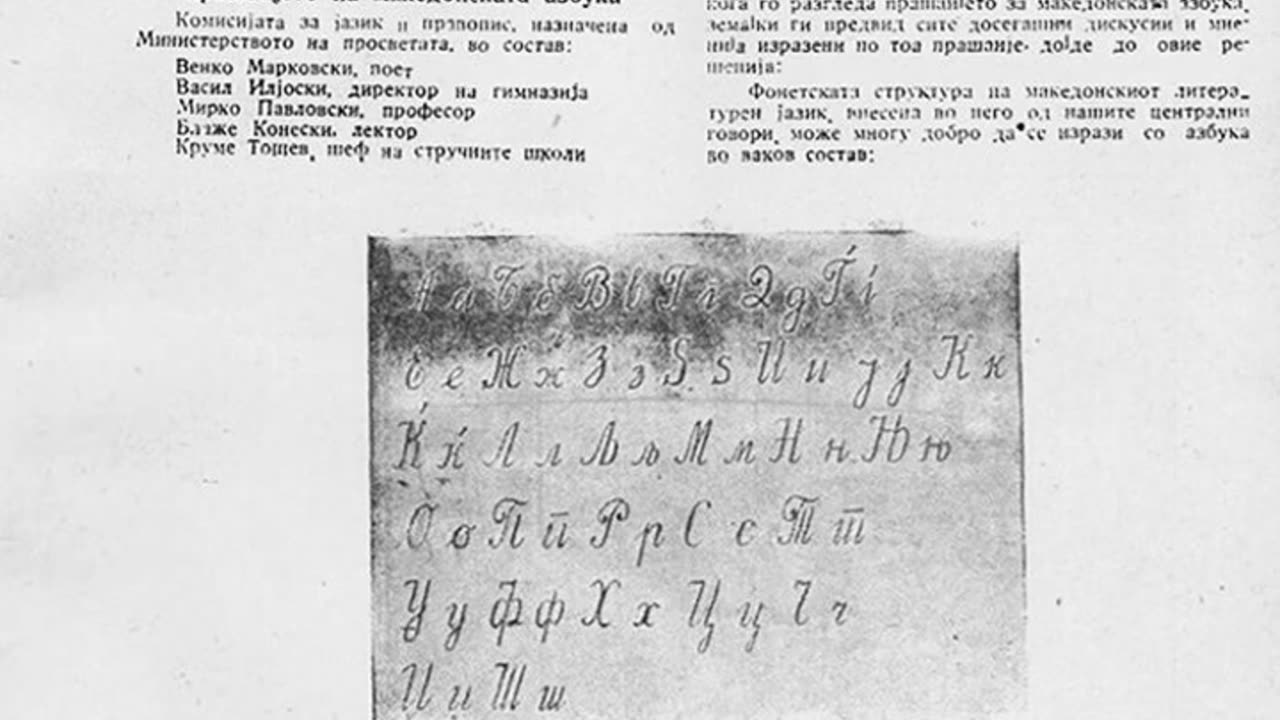 македонската азбука
Комисијата за јазик и правопис, назначена од
Министерството на просветата, во состав:
Венко Марковски, поет
Васил Илјоски, директор на гимназија
Мирко Павловски, професор
Блаже Конески, лектор
Круме Тошев, шеф на стручните школи
кога го разгледа прашањето за македонската азбука,
земајќи ги предвид сите досегашни дискусии и мне-
нија изразени по тоа прашање, дојде до овие ре-
шенија:
Фонетската структура на македонскиот литера-
турен јазик, внесена во него од нашите централни
говори, може многу добро да се изрази со азбука
во ваков состав:
А а Б б В в Г г Д д Ѓ ѓ
Е е Ж ж З з Ѕ ѕ И и Ј ј К к
Ќ ќ Л л Љ љ М м Н н Њ њ
О о П п Р р С с Т т
У у Ф ф Х х Ц ц Ч ч
Џ џ Ш ш